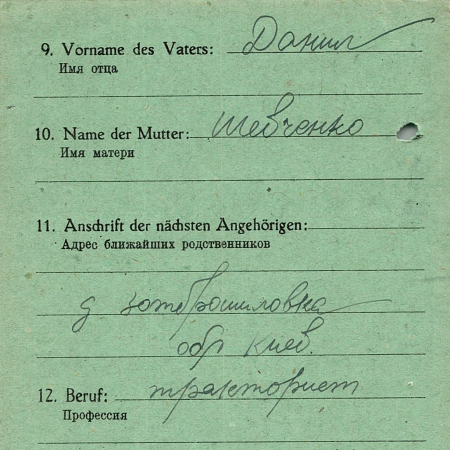 9. Vorname des Vaters: Данил
Имя отца
10. Name der Mutter: Шевченко
Имя матери
11. Anschrift der nächsten Angehörigen:
Адрес ближайших родственников
д
обл Киев.
12. Beruf: тракторист
Профессия